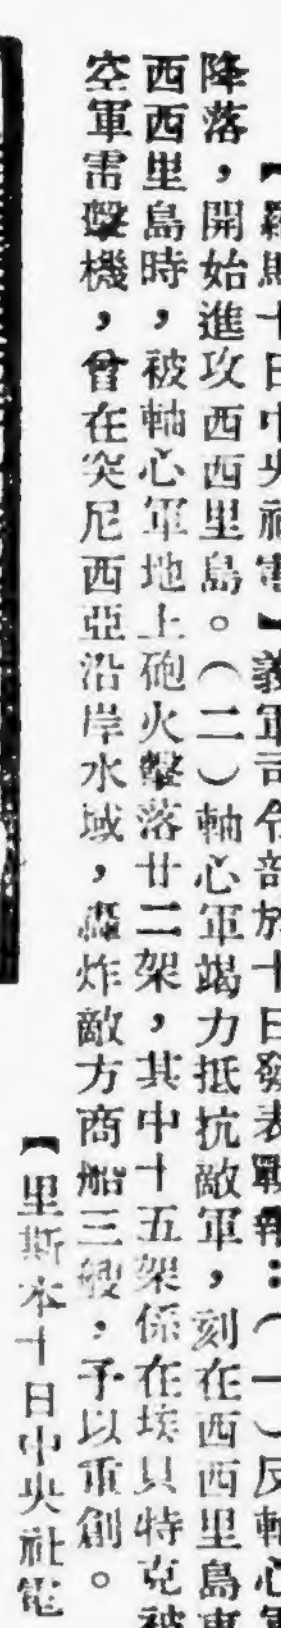 【羅馬十日中央社電】義軍司令部於十日發表戰報：（一）反軸心軍
降落，開始進攻西西里島。（二）軸心軍竭力抵抗敵軍，刻在西西里島東
西西里島時，被軸心軍地上砲火擊落廿二架，其中十五架係在埃貝特克被
空軍雷擊機，曾在突尼西亞沿岸水域，轟炸敵方商船三艘，予以重創。
【里斯本十日中央社電